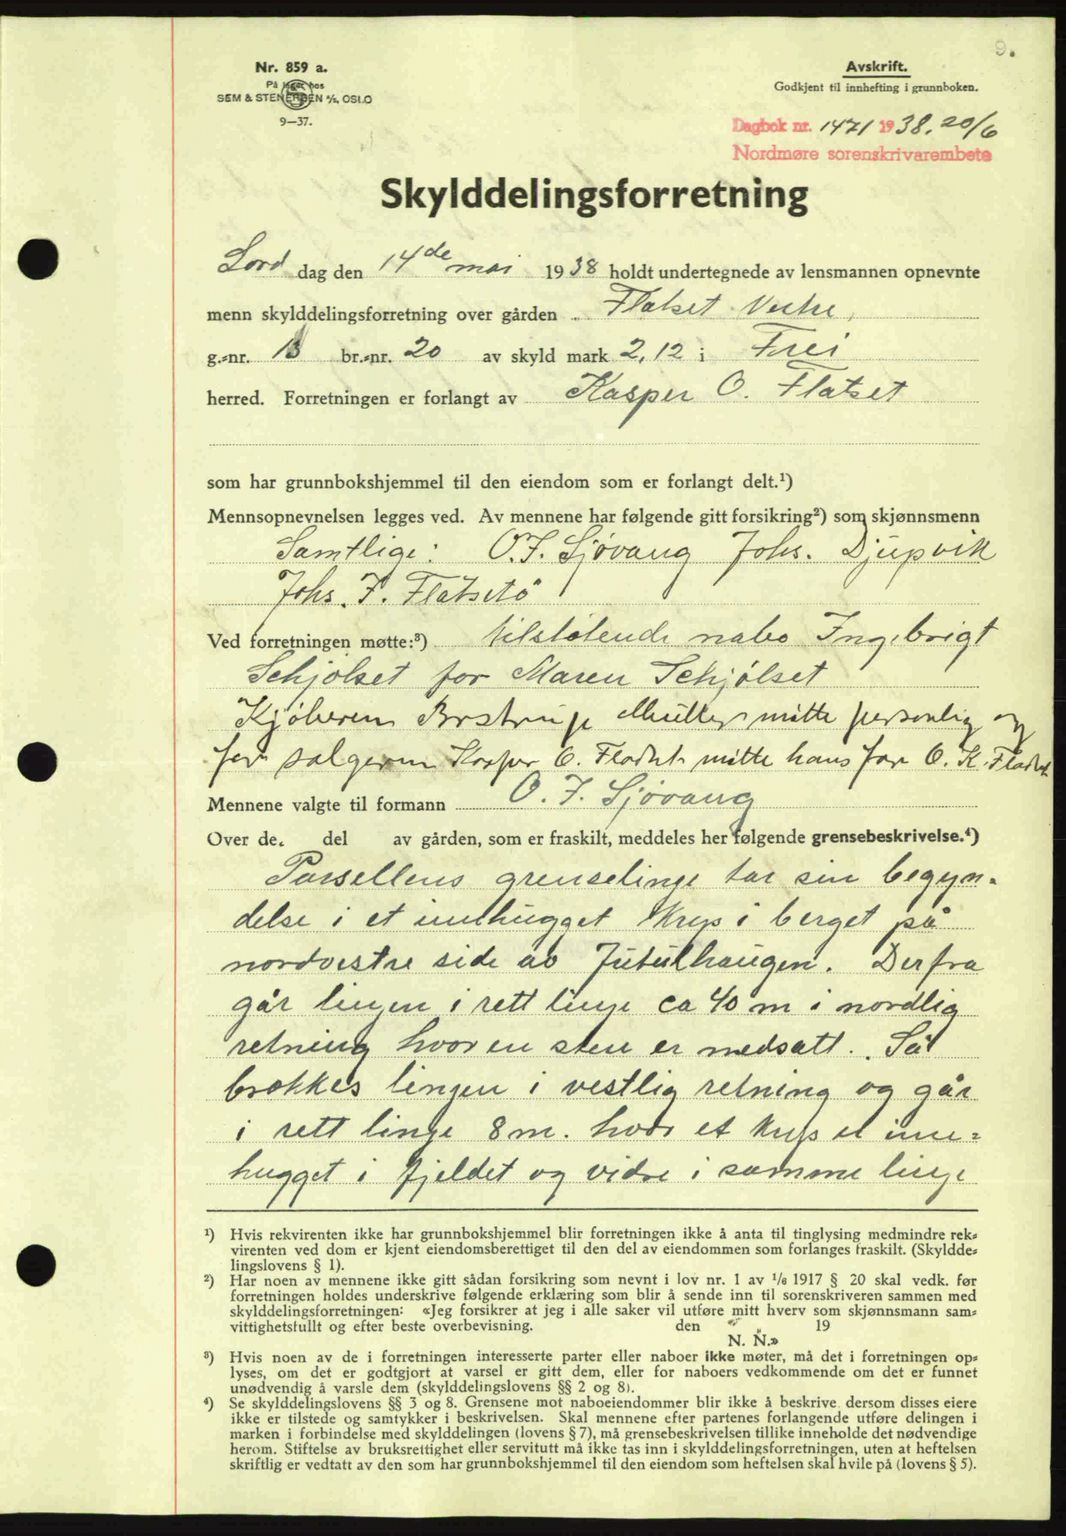 9.
Nr. 859 a.
På lager hos
SEM & STENERSEN A/S, OSLO
9—37.
Avskrift.
Godkjent til innhefting i grunnboken.
Dagbok nr. 1471 1938. 20/6
Nordmøre sorenskrivarembete
Skylddelingsforretning
Lørd dag den 14de mai 1938 holdt undertegnede av lensmannen opnevnte
menn skylddelingsforretning over gården Flatset Vestre,
g.=nr. 13 br.=nr. 20 av skyld mark 2,12 i Frei
herred. Forretningen er forlangt av Kasper O. Flatset
som har grunnbokshjemmel til den eiendom som er forlangt delt.¹)
Mennsopnevnelsen legges ved. Av mennene har følgende gitt forsikring²) som skjønnsmenn
Samtlige: O. J. Sjøvang Johs. Djupvik
Johs. F. Flatsetø
Ved forretningen møtte:³) tilstøtende nabo Ingebrigt
Schjølset for Maren Schjølset
Kjøberen Møller møtte personlig og
for selgeren Kasper O. Flatset møtte hans far O. K. Flatset
Mennene valgte til formann O. J. Sjøvang
Over de. del av gården, som er fraskilt, meddeles her følgende grensebeskrivelse.⁴)
Parsellens grenselinje tar sin begyn-
delse i et innhugget krys i berget på
nordvestre side av Jutulhaugen. Derfra
går linjen i rett linje ca 40 m i nordlig
retning hvor en sten er nedsatt. Så
brekkes linjen i vestlig retning og går
i rett linje 8 m. hvor et kryss er inne=
hugget i fjeldet og vidre i samme linje
¹) Hvis rekvirenten ikke har grunnbokshjemmel blir forretningen ikke å anta til tinglysing medmindre rek=
virenten ved dom er kjent eiendomsberettiget til den del av eiendommen som forlanges fraskilt. (Skyldde=
lingslovens § 1).
²) Har noen av mennene ikke gitt sådan forsikring som nevnt i lov nr. 1 av 1/6 1917 § 20 skal vedk. før
forretningen holdes underskrive følgende erklæring som blir å sende inn til sorenskriveren sammen med
skylddelingsforretningen: «Jeg forsikrer at jeg i alle saker vil utføre mitt hverv som skjønnsmann sam=
vittighetsfullt og efter beste overbevisning. den 19
N. N.»
³) Hvis noen av de i forretningen interesserte parter eller naboer ikke møter, må det i forretningen op=
lyses, om det er godtgjort at varsel er gitt dem, eller for naboers vedkommende om det er funnet
unødvendig å varsle dem (skylddelingslovens §§ 2 og 8).
⁴) Se skylddelingslovens §§ 3 og 8. Grensene mot naboeiendommer blir ikke å beskrive dersom disses eiere
ikke er tilstede og samtykker i beskrivelsen. Skal mennene efter partenes forlangende utføre delingen i
marken i forbindelse med skylddelingen (lovens § 7), må grensebeskrivelsen tillike inneholde det nødvendige
herom. Stiftelse av bruksrettighet eller servitutt må ikke tas inn i skylddelingsforretningen, uten at heftelsen
skriftlig er vedtatt av den som har grunnbokshjemmel til den eiendom som heftelsen skal hvile på (lovens § 5).